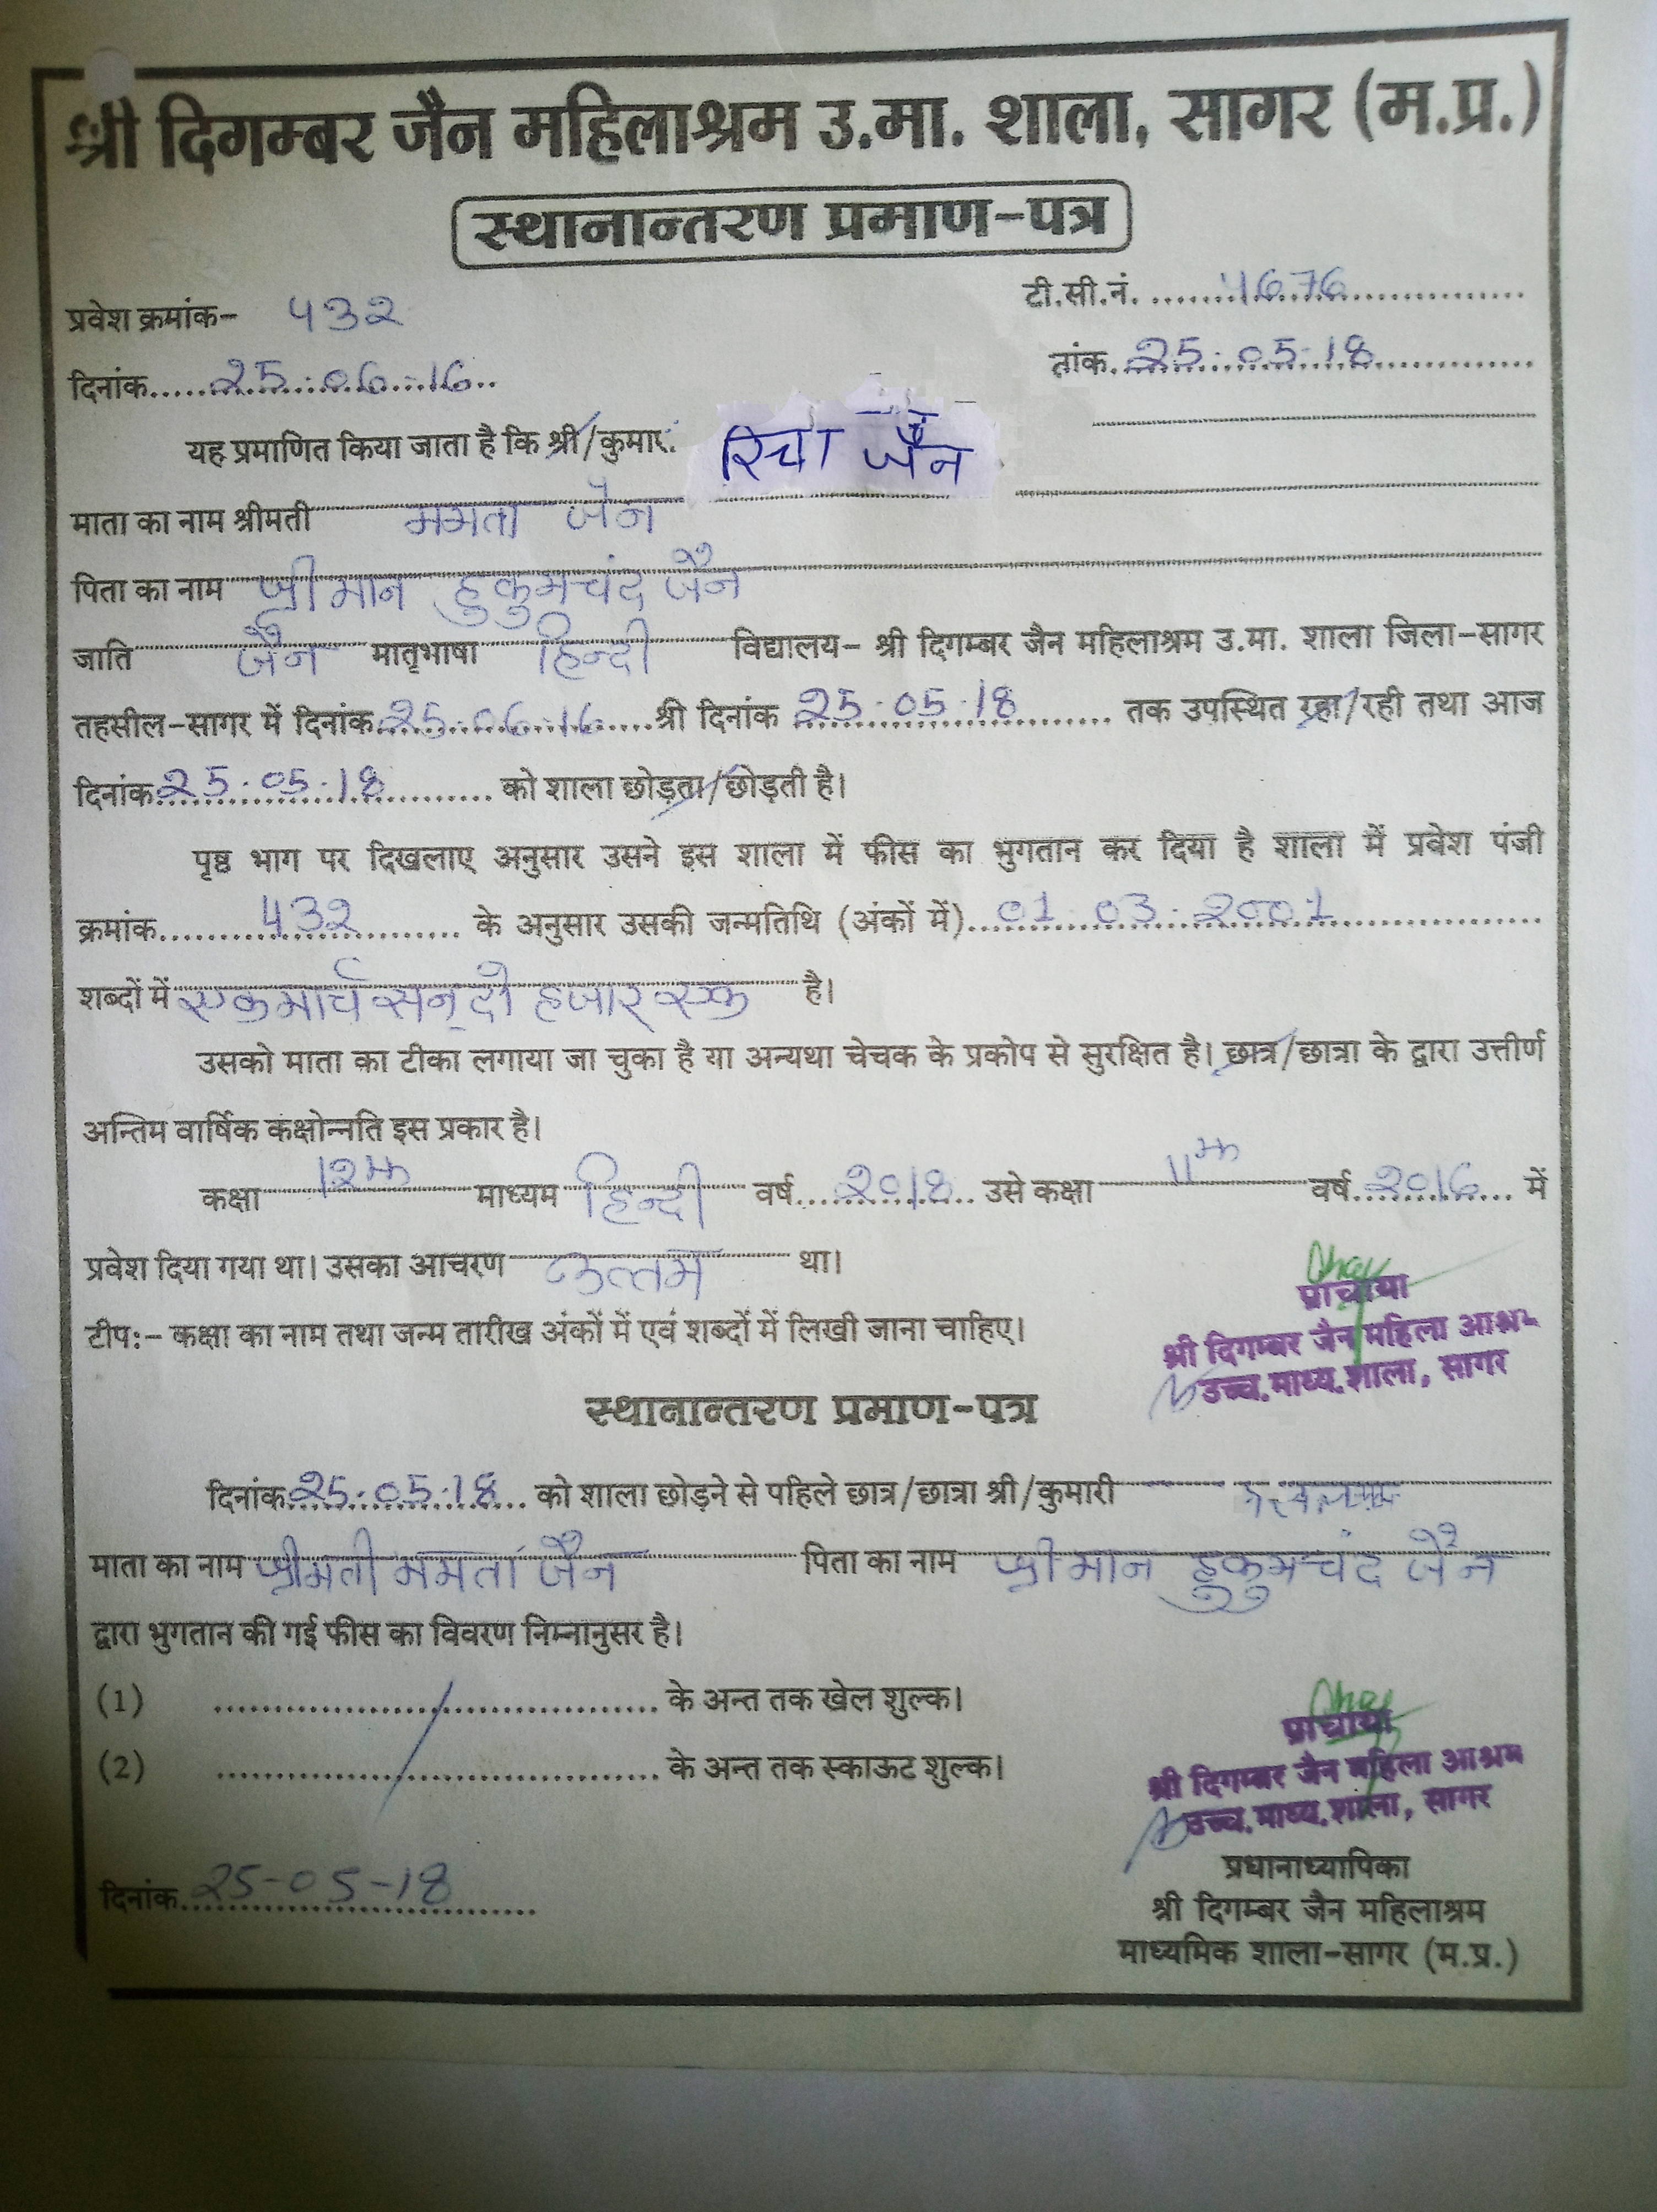 श्री दिगम्बर जैन महिलाश्रम उ.मा. शाला, सागर (म.प्र.)
स्थानान्तरण प्रमाण-पत्र
टी.सी.नं. 4676
प्रवेश क्रमांक- 432
तांक. 25-05-18
दिनांक 25-06-16
यह प्रमाणित किया जाता है कि श्री/कुमार. रिचा जैन
माता का नाम श्रीमती ममता जैन
पिता का नाम श्रीमान हुकुमचंद जैन
जाति जैन मातृभाषा हिन्दी विद्यालय- श्री दिगम्बर जैन महिलाश्रम उ.मा. शाला जिला-सागर
तहसील-सागर में दिनांक 25-06-16 श्री दिनांक 25-05-18 तक उपस्थित रहा/रही तथा आज
दिनांक 25-05-18 को शाला छोड़ता/छोड़ती है।
पृष्ठ भाग पर दिखलाए अनुसार उसने इस शाला में फीस का भुगतान कर दिया है शाला में प्रवेश पंजी
क्रमांक 432 के अनुसार उसकी जन्मतिथि (अंकों में) 01-03-2001
शब्दों में एक मार्च सन् दो हजार एक है।
उसको माता का टीका लगाया जा चुका है या अन्यथा चेचक के प्रकोप से सुरक्षित है। छात्र/छात्रा के द्वारा उत्तीर्ण
अन्तिम वार्षिक कक्षोन्नति इस प्रकार है।
कक्षा 12th माध्यम हिन्दी वर्ष 2018 उसे कक्षा 11th वर्ष 2016 में
प्रवेश दिया गया था। उसका आचरण उत्तम था।
प्राचार्या
टीपः- कक्षा का नाम तथा जन्म तारीख अंकों में एवं शब्दों में लिखी जाना चाहिए।
श्री दिगम्बर जैन महिला आश्रम
उच्च.माध्य.शाला, सागर
स्थानान्तरण प्रमाण-पत्र
दिनांक 25-05-18 को शाला छोड़ने से पहिले छात्र/छात्रा श्री/कुमारी
माता का नाम श्रीमती ममता जैन पिता का नाम श्रीमान हुकुमचंद जैन
द्वारा भुगतान की गई फीस का विवरण निम्नानुसर है।
(1) के अन्त तक खेल शुल्क।
(2) के अन्त तक स्काऊट शुल्क।
प्राचार्या
श्री दिगम्बर जैन महिला आश्रम
उच्च.माध्य.शाला, सागर
दिनांक 25-05-18
प्रधानाध्यापिका
श्री दिगम्बर जैन महिलाश्रम
माध्यमिक शाला-सागर (म.प्र.)